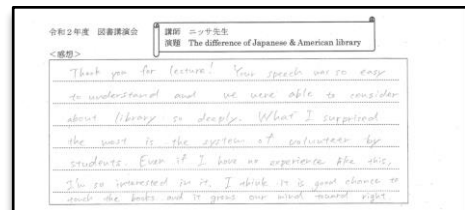 令和２年度　図書講演会
講師　ニッサ先生
演題　The difference of Japanese & American library
<感想>
Thank you for lecture! Your speech was so easy
to understand and we were able to consider
about library so deeply. What I surprised
the most is the system of volunteer by
students. Even if I have no experience like this,
I'm so interested in it. I think it is good chance to
touch the books and it grows our mind toward right